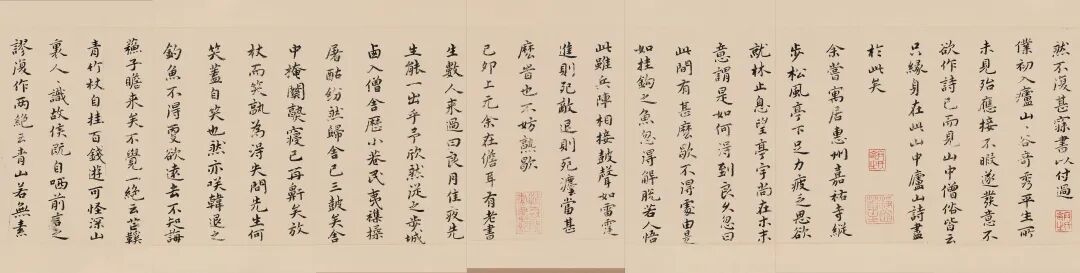 然不復甚寐書以付過
僕初入廬山、谷奇秀平生所
未見殆應接不暇遂發意不
欲作詩已而見山中僧俗皆云
只緣身在此山中廬山詩盡
於此矣
余嘗寓居惠州嘉祐寺縱
步松風亭下足力疲乏思欲
就林止息望亭宇尚在木末
意謂是如何得到良久忽曰
此間有甚麼歇不得處由是
如挂鉤之魚忽得解脫若人悟
此雖兵陣相接鼓聲如雷霆
進則死敵退則死灋當甚
麼旹也不妨熟歇
己卯上元余在儋耳有老書
生數人來過曰良月佳夜先
生能一出乎予欣然從之步城
卥入僧舍歷小巷民夷襍揉
屠酤紛然歸舍已三鼓矣舍
中掩關熟寢已再鼾矣放
杖而笑孰為得失問先生何
笑蓋自笑也然亦笑韓退之
釣魚不得更欲遠去不知
蘇子瞻來矣不覺一絕云芒鞵
青竹杖自挂百錢遊可怪深山
裏人、識故侯既自哂前言之
謬復作兩絕云青山若無素